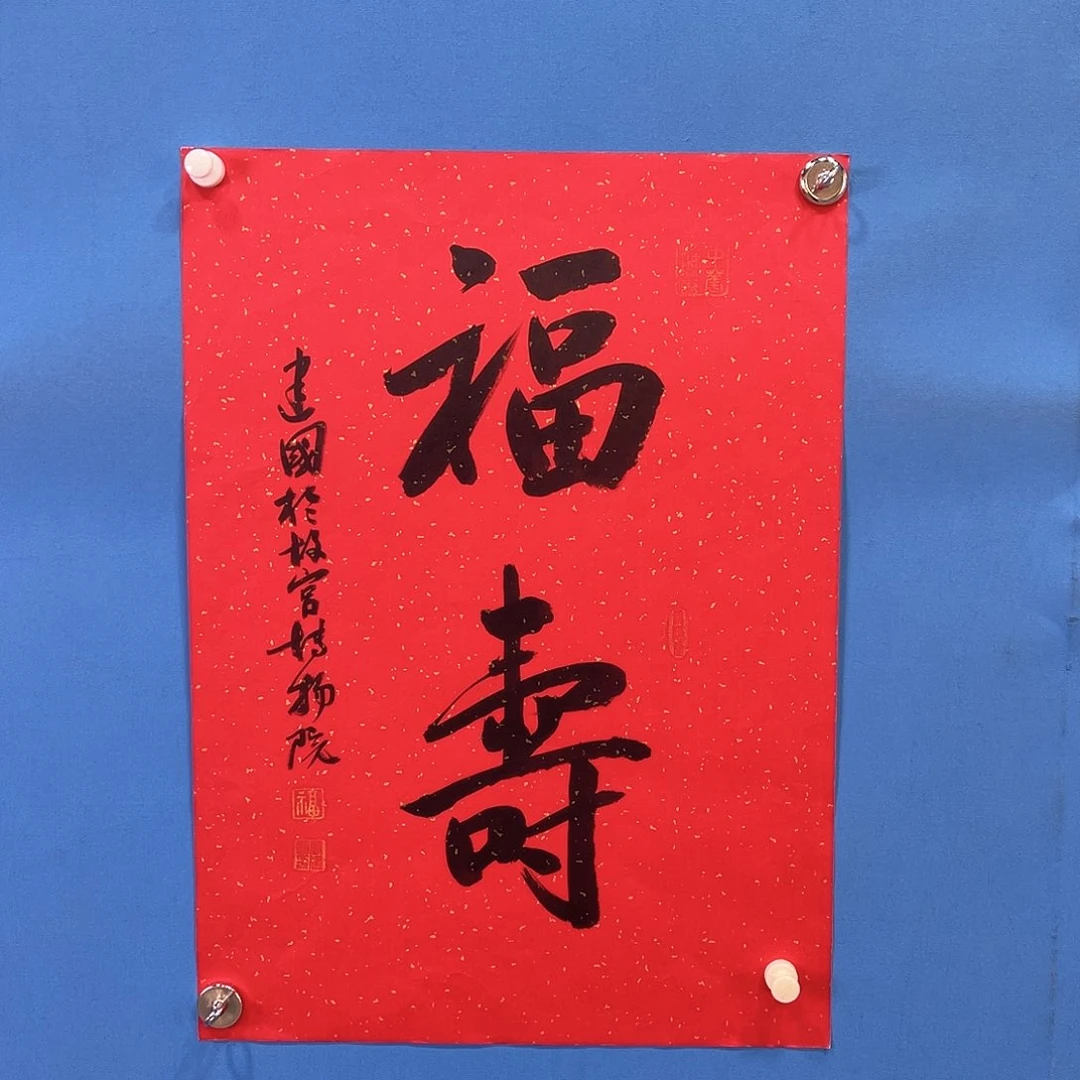 福壽
建國於故宮博物院
福